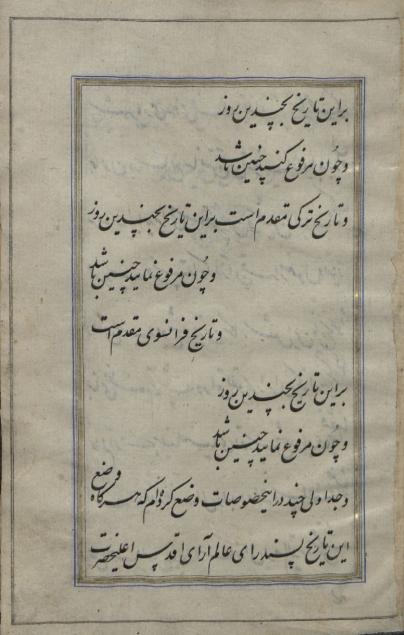 براین تاریخ بچندین روز
و چون مرفوع کنند چنین باشد
و تاریخ ترکی مقدم است براین تاریخ بچندین روز
و چون مرفوع نمایند چنین باشد
و تاریخ فرانسوی مقدم است
براین تاریخ بچندین روز
و چون مرفوع نمایند چنین باشد
و جداولی چند در اینخصوصات وضع کرده‌ام که هرگاه وضع
این تاریخ پسند رای عالم آرای اقدس اعلیحضرت